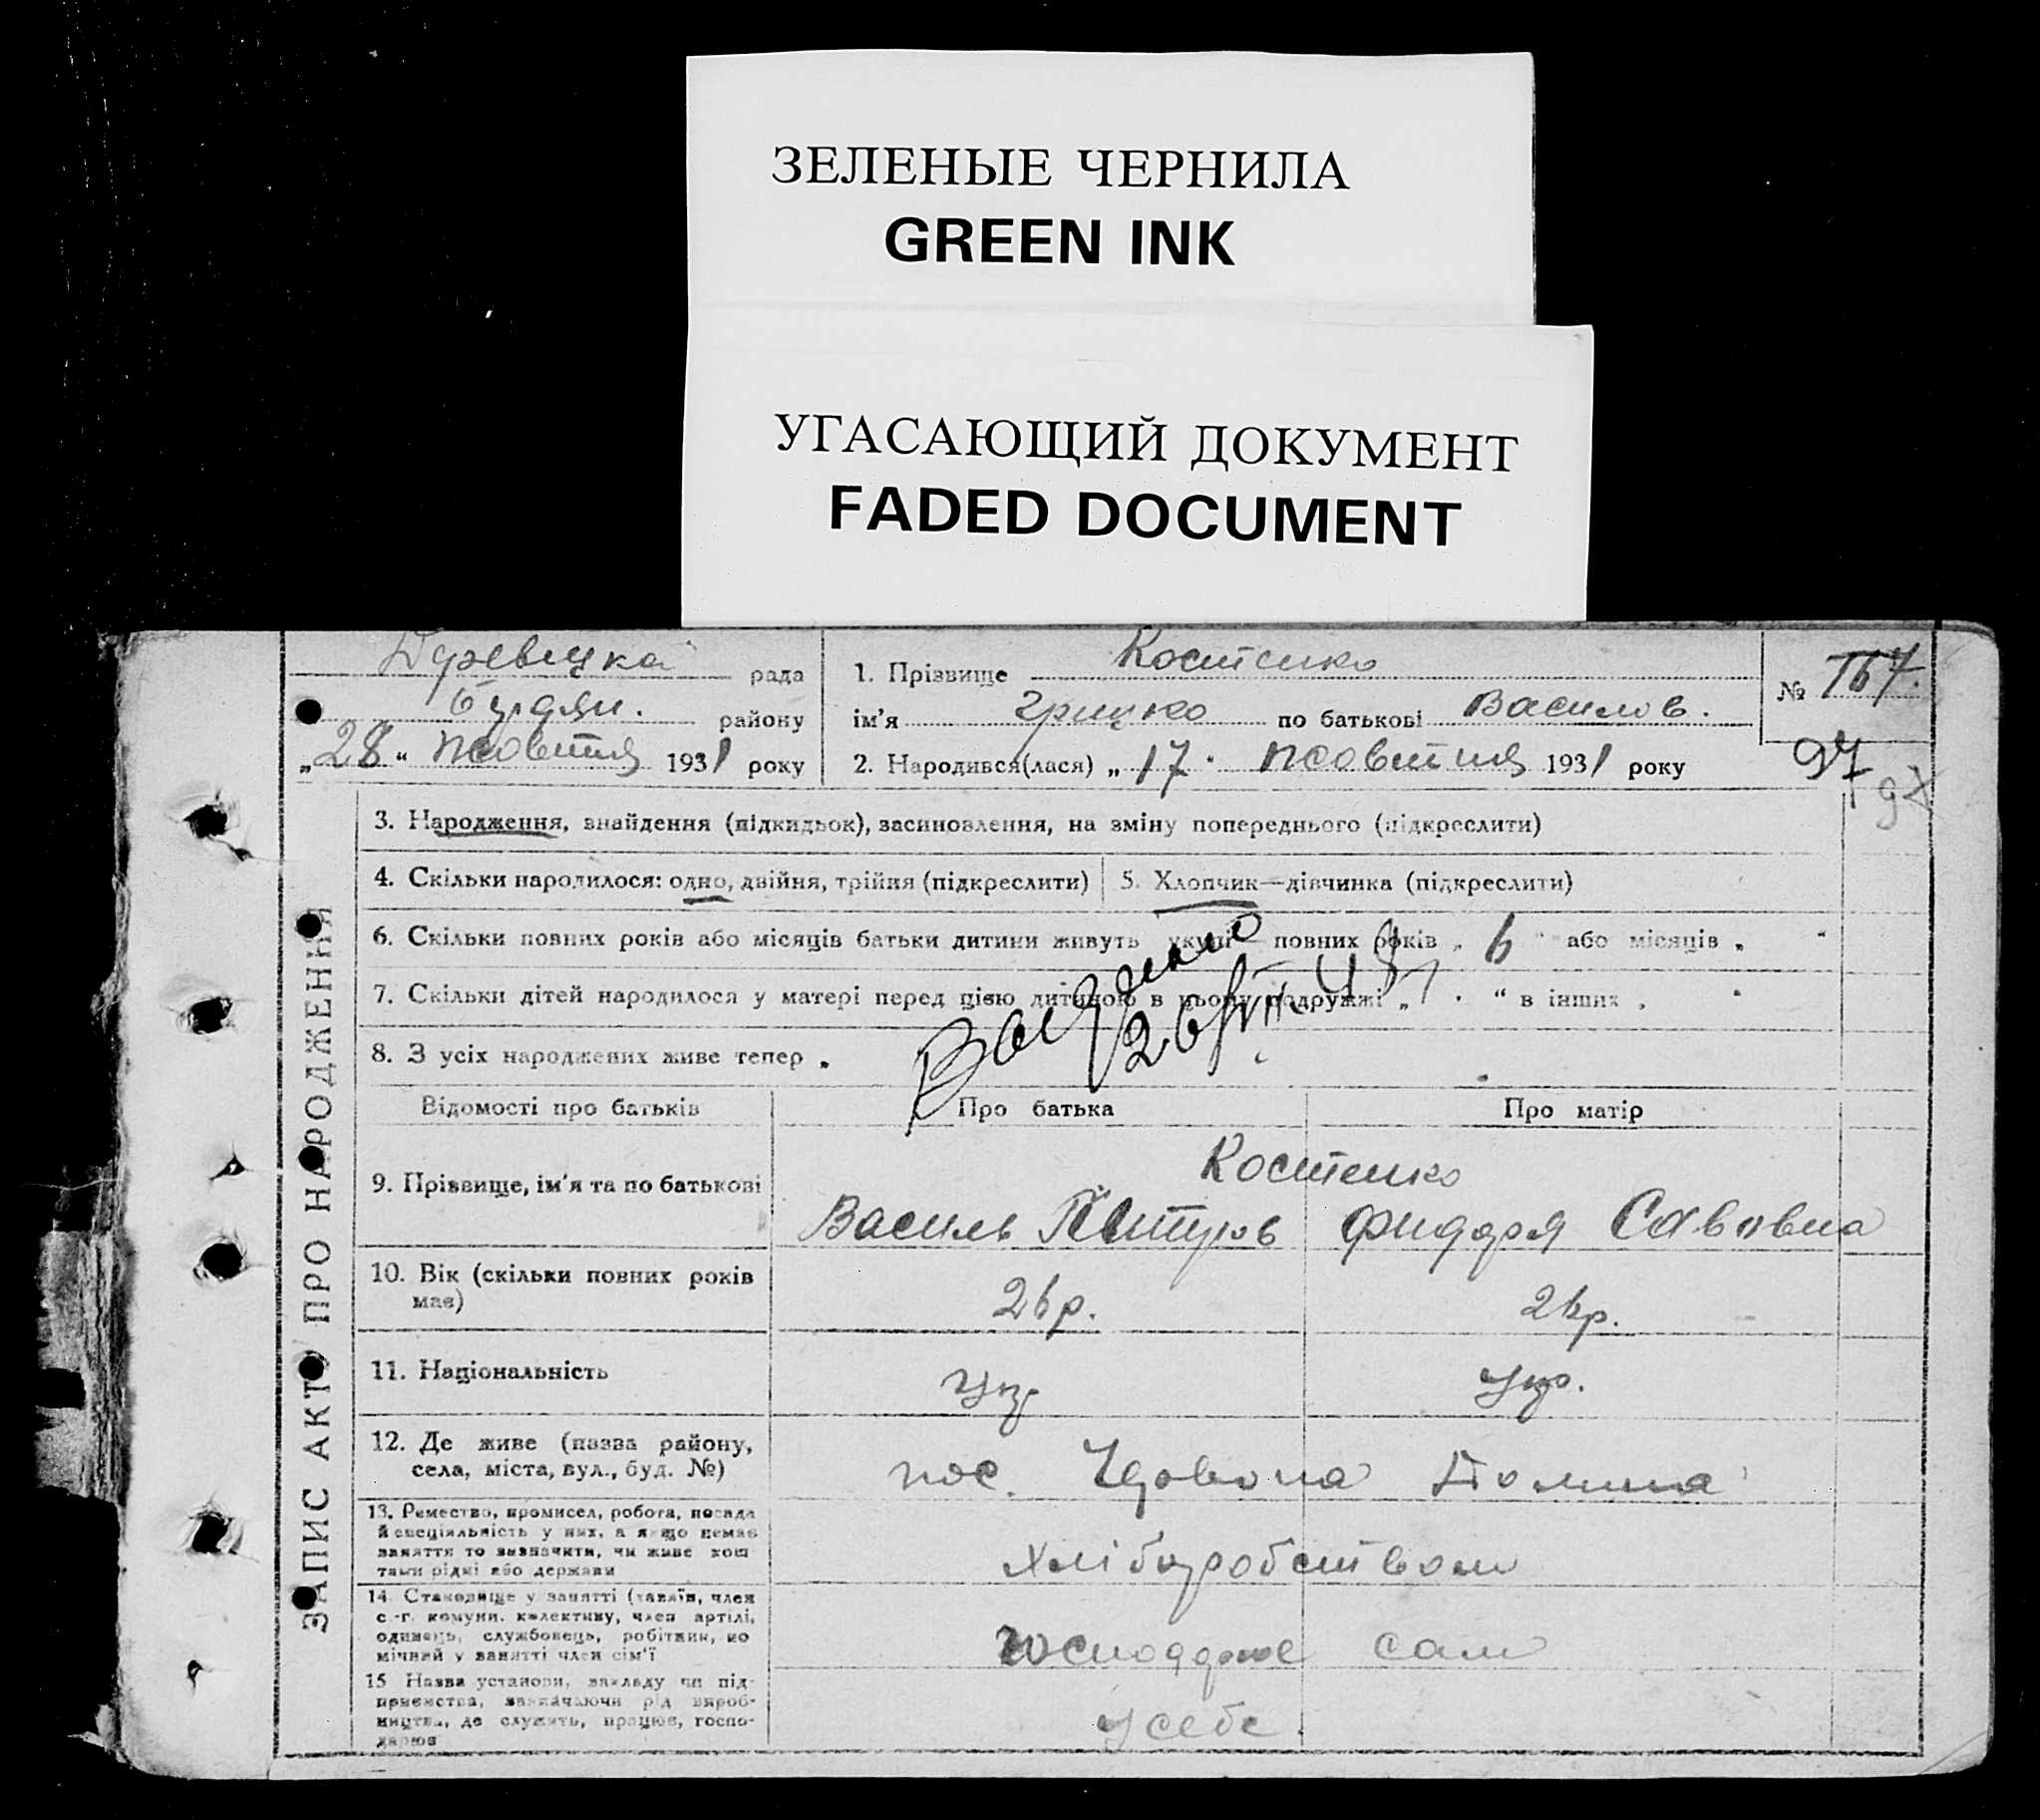 ЗЕЛЕНЫЕ ЧЕРНИЛА
GREEN INK
УГАСАЮЩИЙ ДОКУМЕНТ
FADED DOCUMENT
рада
району
„28“ жовтня 1931 року
1. Прізвище Костенко
ім'я Грицко по батькові Василов.
2. Народився(лася) „17. жовтня 1931 року
№ 167.
97
97
ЗАПИС АКТУ ПРО НАРОДЖЕННЯ
3. Народження, знайдення (підкидьок), засиновлення, на зміну попереднього (підкреслити)
4. Скільки народилося: одно, двійня, трійня (підкреслити)
5. Хлопчик—дівчинка (підкреслити)
6. Скільки повних років або місяців батьки дитини живуть укупі— повних років „ 6 “ або місяців „ “
7. Скільки дітей народилося у матері перед цією дитиною в цьому подружжі „ 1 . “ в інших „ “
8. З усіх народжених живе тепер „
26/VII-48
Відомості про батьків
Про батька
Про матір
9. Прізвище, ім'я та по батькові
Костенко
Василь Петров
Савовна
10. Вік (скільки повних років має)
26р.
26р.
11. Національність
укр.
укр.
12. Де живе (назва району,
села, міста, вул., буд. №)
пос.
13. Ремество, промисел, робота, посада
й спеціяльність у них, а якщо немає
заняття то визначити, чи живе кош-
тами рідні або держави
хліборобством
14. Становище у занятті (хазяїн, член
с.-г. комуни, колективу, член артілі,
одинець, службовець, робітник, по-
мічний у занятті член сім'ї
сам
15 Назва установи, закладу чи під-
приємства, зазначаючи рід вироб-
ництва, де служить, працює, госпо-
дарює
у себе.